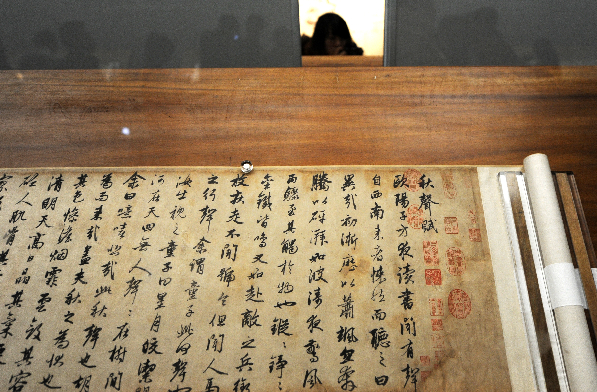 秋聲賦
歐陽子方夜讀書聞有聲
自西南来者悚然而聽之曰
異哉初淅瀝以蕭颯忽奔
騰以砰湃如波濤夜驚風
雨驟至其觸於物也鏦〻錚〻
金鐵皆鳴又如赴敵之兵銜
枚疾走不聞號令但聞人馬
之行聲余謂童子此何聲也
汝出視之童子曰星月皎潔明
河在天四無人聲〻在樹間
余曰噫嘻悲哉此秋聲也胡
為而来哉盖夫秋之為狀也
其色惨淡烟霏雲斂其容
清明天高日晶其氣
砭人肌骨其